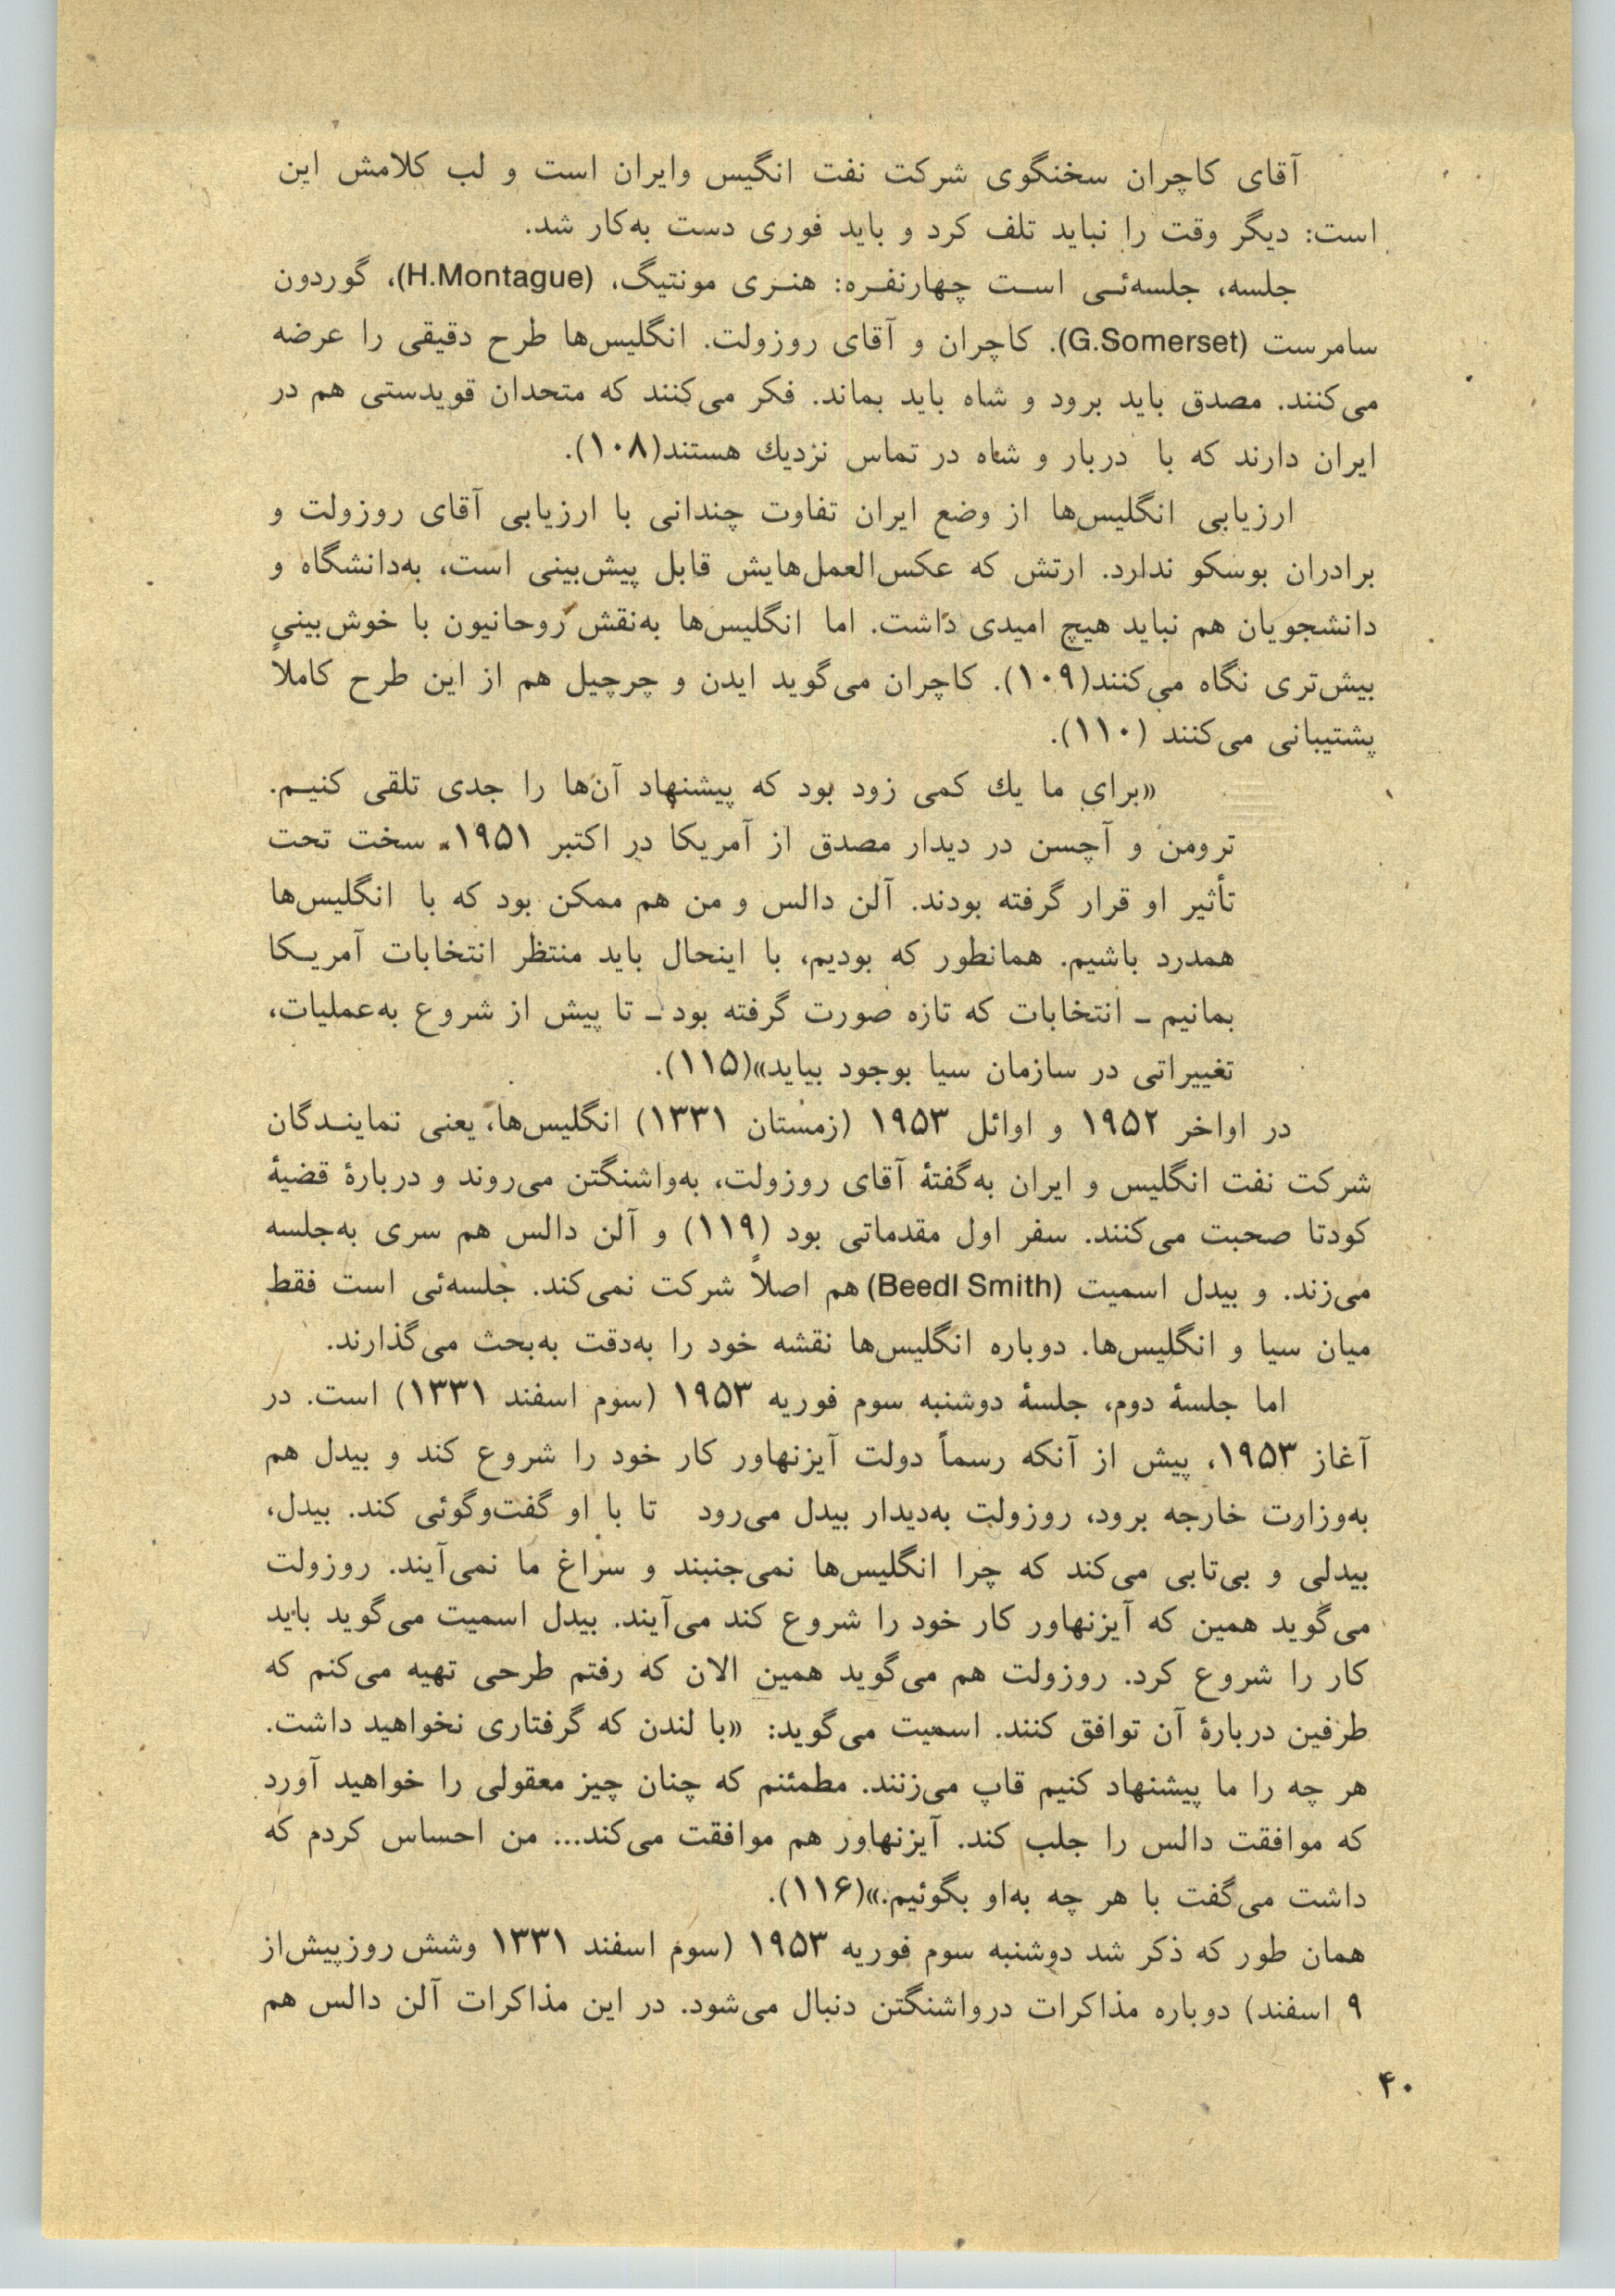 آقای کاچران سخنگوی شرکت نفت انگیس وایران است و لب کلامش این
است: دیگر وقت را نباید تلف کرد و باید فوری دست به‌کار شد.
جلسه، جلسه‌ئی است چهارنفره: هنری مونتیگ، (H.Montague)، گوردون
سامرست (G.Somerset). کاچران و آقای روزولت. انگلیس‌ها طرح دقیقی را عرضه
می‌کنند. مصدق باید برود و شاه باید بماند. فکر می‌کنند که متحدان قویدستی هم در
ایران دارند که با دربار و شاه در تماس نزدیك هستند(۱۰۸).
ارزیابی انگلیس‌ها از وضع ایران تفاوت چندانی با ارزیابی آقای روزولت و
برادران بوسکو ندارد. ارتش که عکس‌العمل‌هایش قابل پیش‌بینی است، به‌دانشگاه و
دانشجویان هم نباید هیچ امیدی داشت. اما انگلیس‌ها به‌نقش روحانیون با خوش‌بینی
بیش‌تری نگاه می‌کنند(۱۰۹). کاچران می‌گوید ایدن و چرچیل هم از این طرح کاملاً
پشتیبانی می‌کنند (۱۱۰).
«برای ما یك کمی زود بود که پیشنهاد آن‌ها را جدی تلقی کنیم.
ترومن و آچسن در دیدار مصدق از آمریکا در اکتبر ۱۹۵۱، سخت تحت
تأثیر او قرار گرفته بودند. آلن دالس و من هم ممکن بود که با انگلیس‌ها
همدرد باشیم. همانطور که بودیم، با اینحال باید منتظر انتخابات آمریکا
بمانیم ـ انتخابات که تازه صورت گرفته بود ـ تا پیش از شروع به‌عملیات،
تغییراتی در سازمان سیا بوجود بیاید»(۱۱۵).
در اواخر ۱۹۵۲ و اوائل ۱۹۵۳ (زمستان ۱۳۳۱) انگلیس‌ها، یعنی نمایندگان
شرکت نفت انگلیس و ایران به‌گفتهٔ آقای روزولت، به‌واشنگتن می‌روند و دربارهٔ قضیهٔ
کودتا صحبت می‌کنند. سفر اول مقدماتی بود (۱۱۹) و آلن دالس هم سری به‌جلسه
می‌زند. و بیدل اسمیت (Beedl Smith) هم اصلاً شرکت نمی‌کند. جلسه‌ئی است فقط
میان سیا و انگلیس‌ها. دوباره انگلیس‌ها نقشه خود را به‌دقت به‌بحث می‌گذارند.
اما جلسهٔ دوم، جلسهٔ دوشنبه سوم فوریه ۱۹۵۳ (سوم اسفند ۱۳۳۱) است. در
آغاز ۱۹۵۳، پیش از آنکه رسماً دولت آیزنهاور کار خود را شروع کند و بیدل هم
به‌وزارت خارجه برود، روزولت به‌دیدار بیدل می‌رود تا با او گفت‌وگوئی کند. بیدل،
بیدلی و بی‌تابی می‌کند که چرا انگلیس‌ها نمی‌جنبند و سراغ ما نمی‌آیند. روزولت
می‌گوید همین که آیزنهاور کار خود را شروع کند می‌آیند. بیدل اسمیت می‌گوید باید
کار را شروع کرد. روزولت هم می‌گوید همین الان که رفتم طرحی تهیه می‌کنم که
طرفین دربارهٔ آن توافق کنند. اسمیت می‌گوید: «با لندن که گرفتاری نخواهید داشت.
هر چه را ما پیشنهاد کنیم قاپ می‌زنند. مطمئنم که چنان چیز معقولی را خواهید آورد
که موافقت دالس را جلب کند. آیزنهاور هم موافقت می‌کند... من احساس کردم که
داشت می‌گفت با هر چه به‌او بگوئیم.»(۱۱۶).
همان طور که ذکر شد دوشنبه سوم فوریه ۱۹۵۳ (سوم اسفند ۱۳۳۱ وشش روزپیش‌از
۹ اسفند) دوباره مذاکرات درواشنگتن دنبال می‌شود. در این مذاکرات آلن دالس هم
۴۰